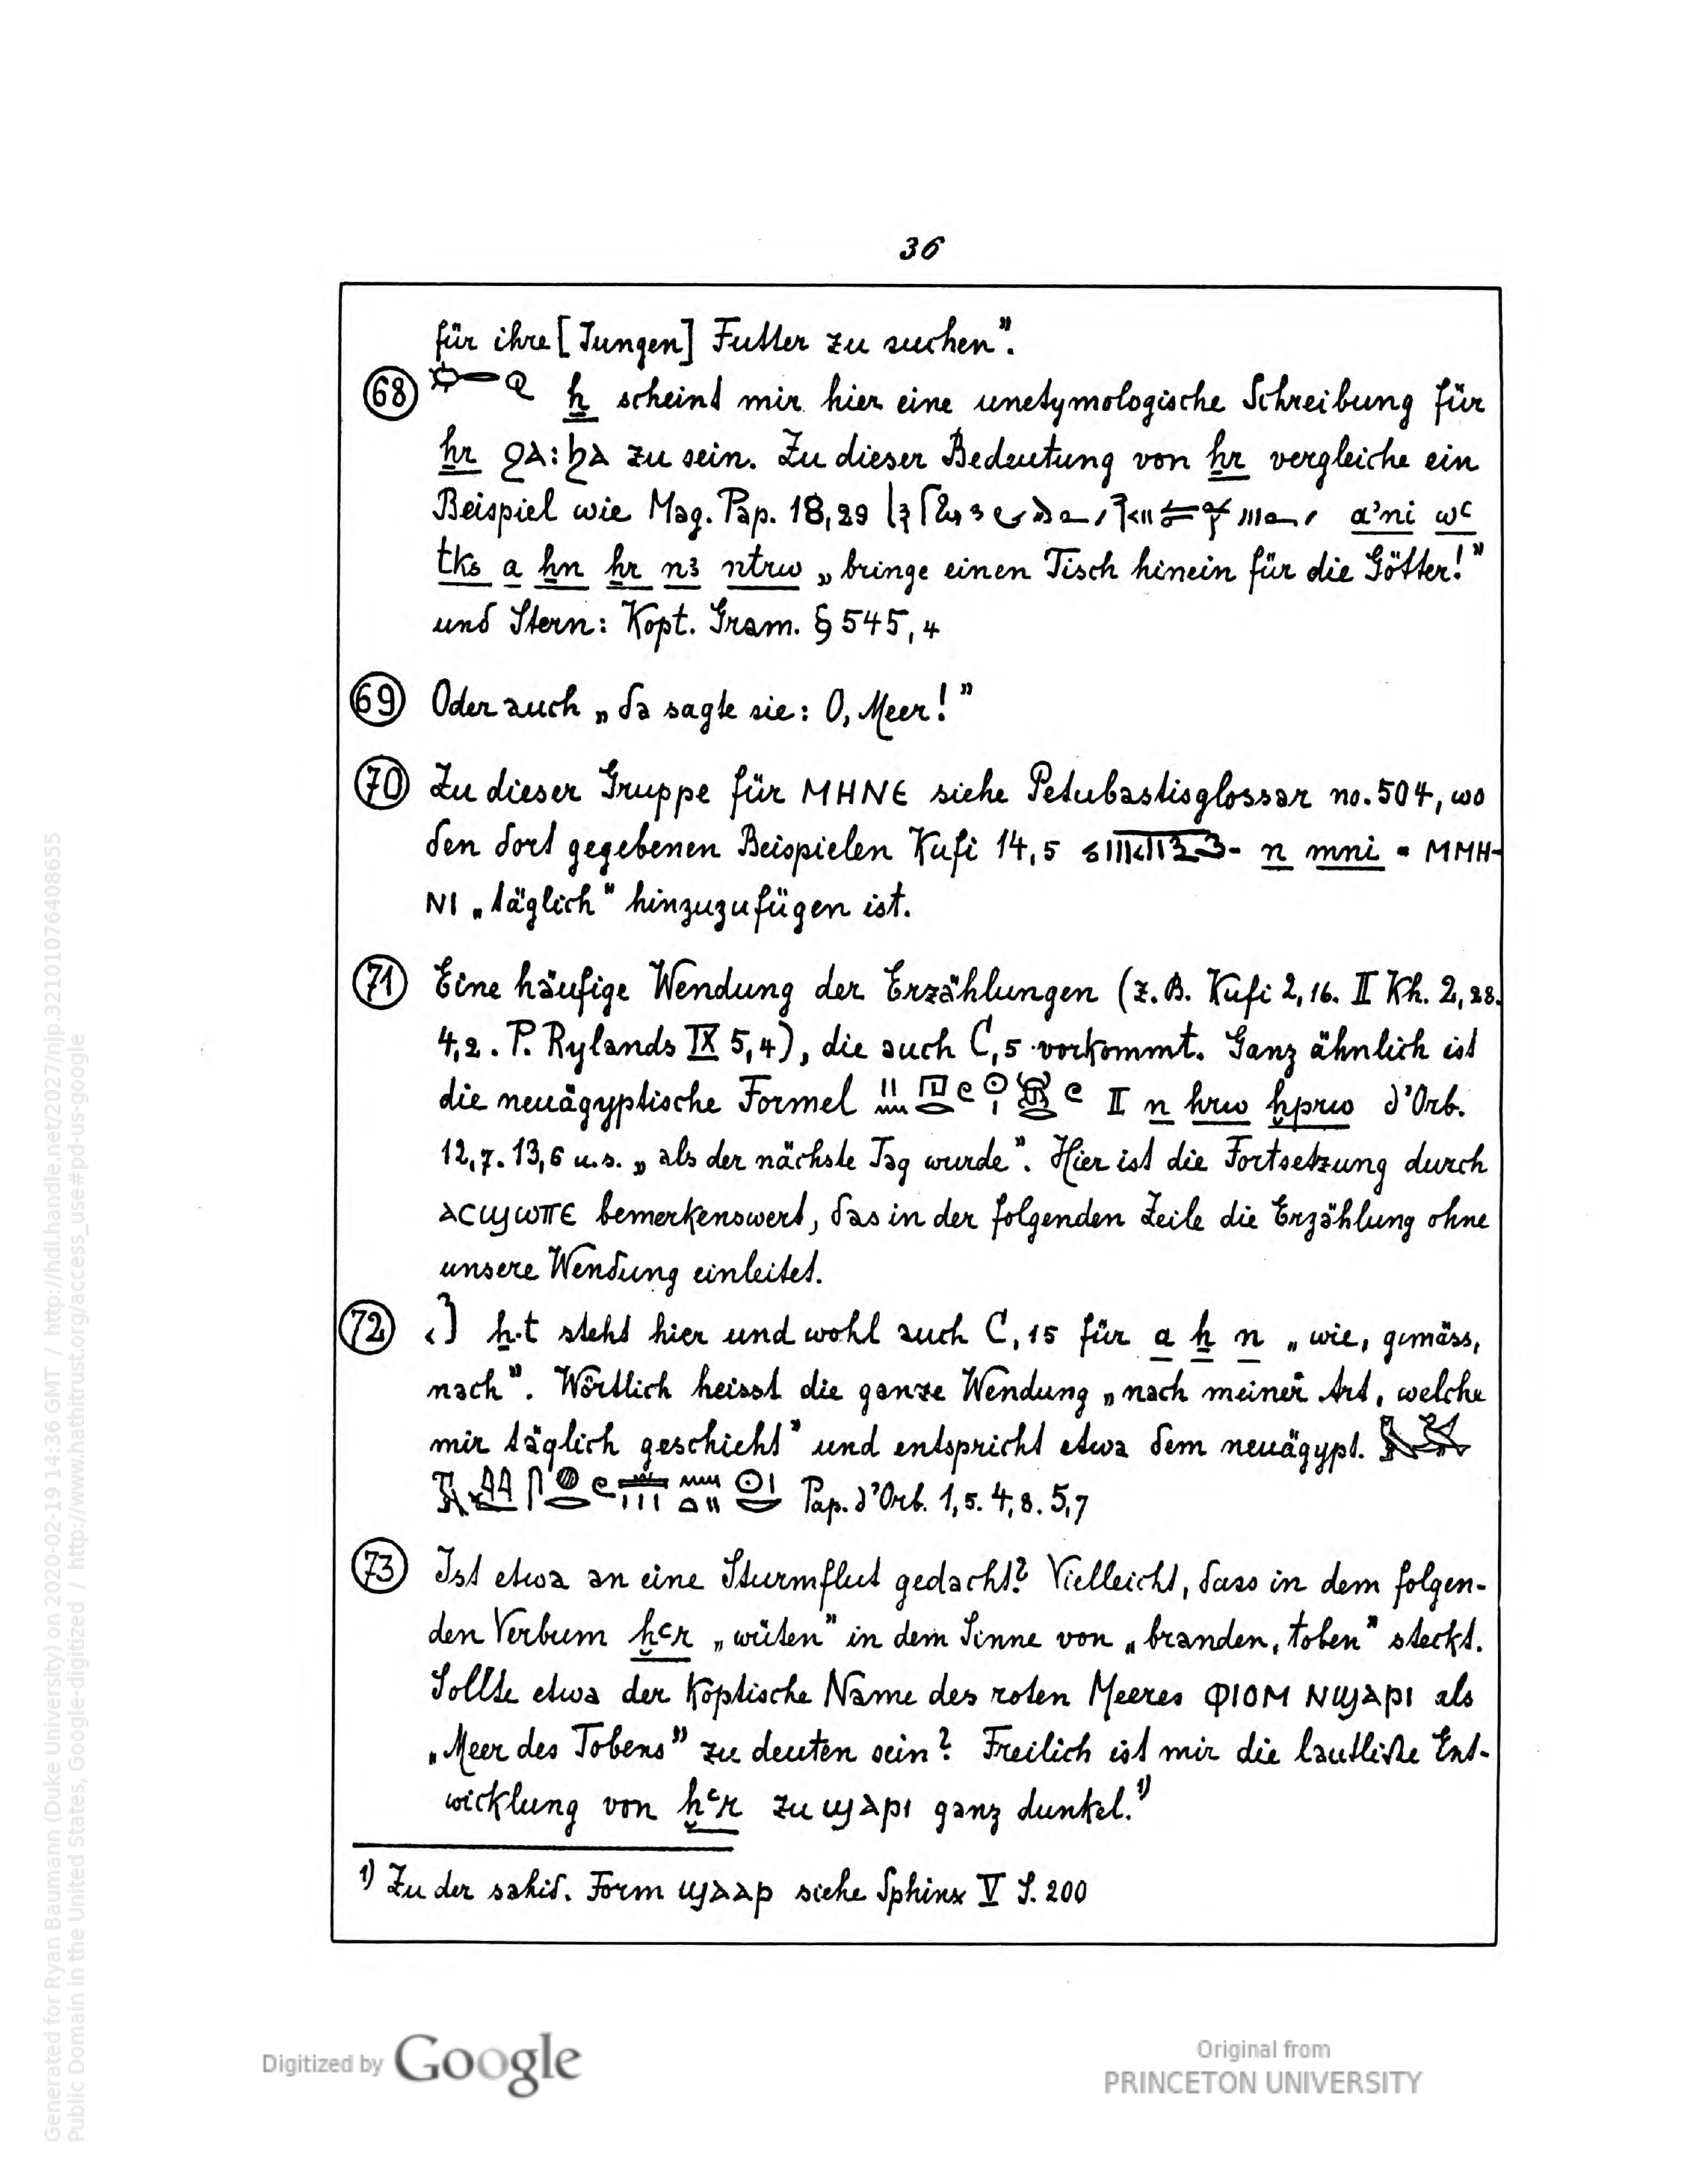 36
für ihre [Jungen] Futter zu suchen".
68 ẖ scheint mir hier eine unetymologische Schreibung für
ẖr ϩⲁ : ϧⲁ zu sein. Zu dieser Bedeutung von ẖr vergleiche ein
Beispiel wie Mag. Pap. 18,29 a'ni wc
tks a ẖn ẖr n3 ntrw „bringe einen Tisch hinein für die Götter!"
und Stern: Kopt. Gram. § 545,4
69 Oder auch „da sagte sie: O, Meer!"
70 Zu dieser Gruppe für ⲙⲏⲛⲉ siehe Petubastisglossar no. 504, wo
den dort gegebenen Beispielen Kufi 14,5 n mni = ⲙⲙⲏ-
ⲛⲓ „täglich" hinzuzufügen ist.
71 Eine häufige Wendung der Erzählungen (z.B. Kufi 2,16. II Kh. 2,28.
4,2. P. Rylands IX 5,4), die auch C,5 vorkommt. Ganz ähnlich ist
die neuägyptische Formel II n hrw ḫprw d'Orb.
12,7. 13,6 u.s. „als der nächste Tag wurde". Hier ist die Fortsetzung durch
ⲁⲥϣⲱⲡⲉ bemerkenswert, das in der folgenden Zeile die Erzählung ohne
unsere Wendung einleitet.
72 ẖ·t steht hier und wohl auch C,15 für a ẖ n „wie, gemäss,
nach". Wörtlich heisst die ganze Wendung „nach meiner Art, welche
mir täglich geschieht" und entspricht etwa dem neuägypt.
Pap. d'Orb. 1,5. 4,8. 5,7
73 Ist etwa an eine Sturmflut gedacht? Vielleicht, dass in dem folgen-
den Verbum ḫcr „wüten" in dem Sinne von „branden, toben" steckt.
Sollte etwa der koptische Name des roten Meeres ⲫⲓⲟⲙ ⲛϣⲁⲣⲓ als
„Meer des Tobens" zu deuten sein? Freilich ist mir die lautliche Ent-
wicklung von ḫcr zu ϣⲁⲣⲓ ganz dunkel.1)
1) Zu der sahid. Form ϣⲁⲁⲣ siehe Sphinx V S. 200
Digitized by Google
Original from
PRINCETON UNIVERSITY
Generated for Ryan Baumann (Duke University) on 2020-02-19 14:36 GMT / http://hdl.handle.net/2027/njp.32101076408655
Public Domain in the United States, Google-digitized / http://www.hathitrust.org/access_use#pd-us-google